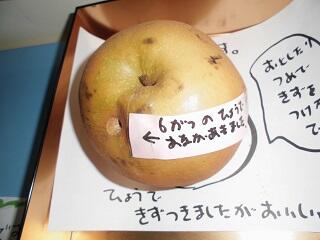 す。
おとした
つめで
きずを
つけ
で
6がつ の ひょうで
← あなが、あきました
ひょうで
きずつきましたが おいしい